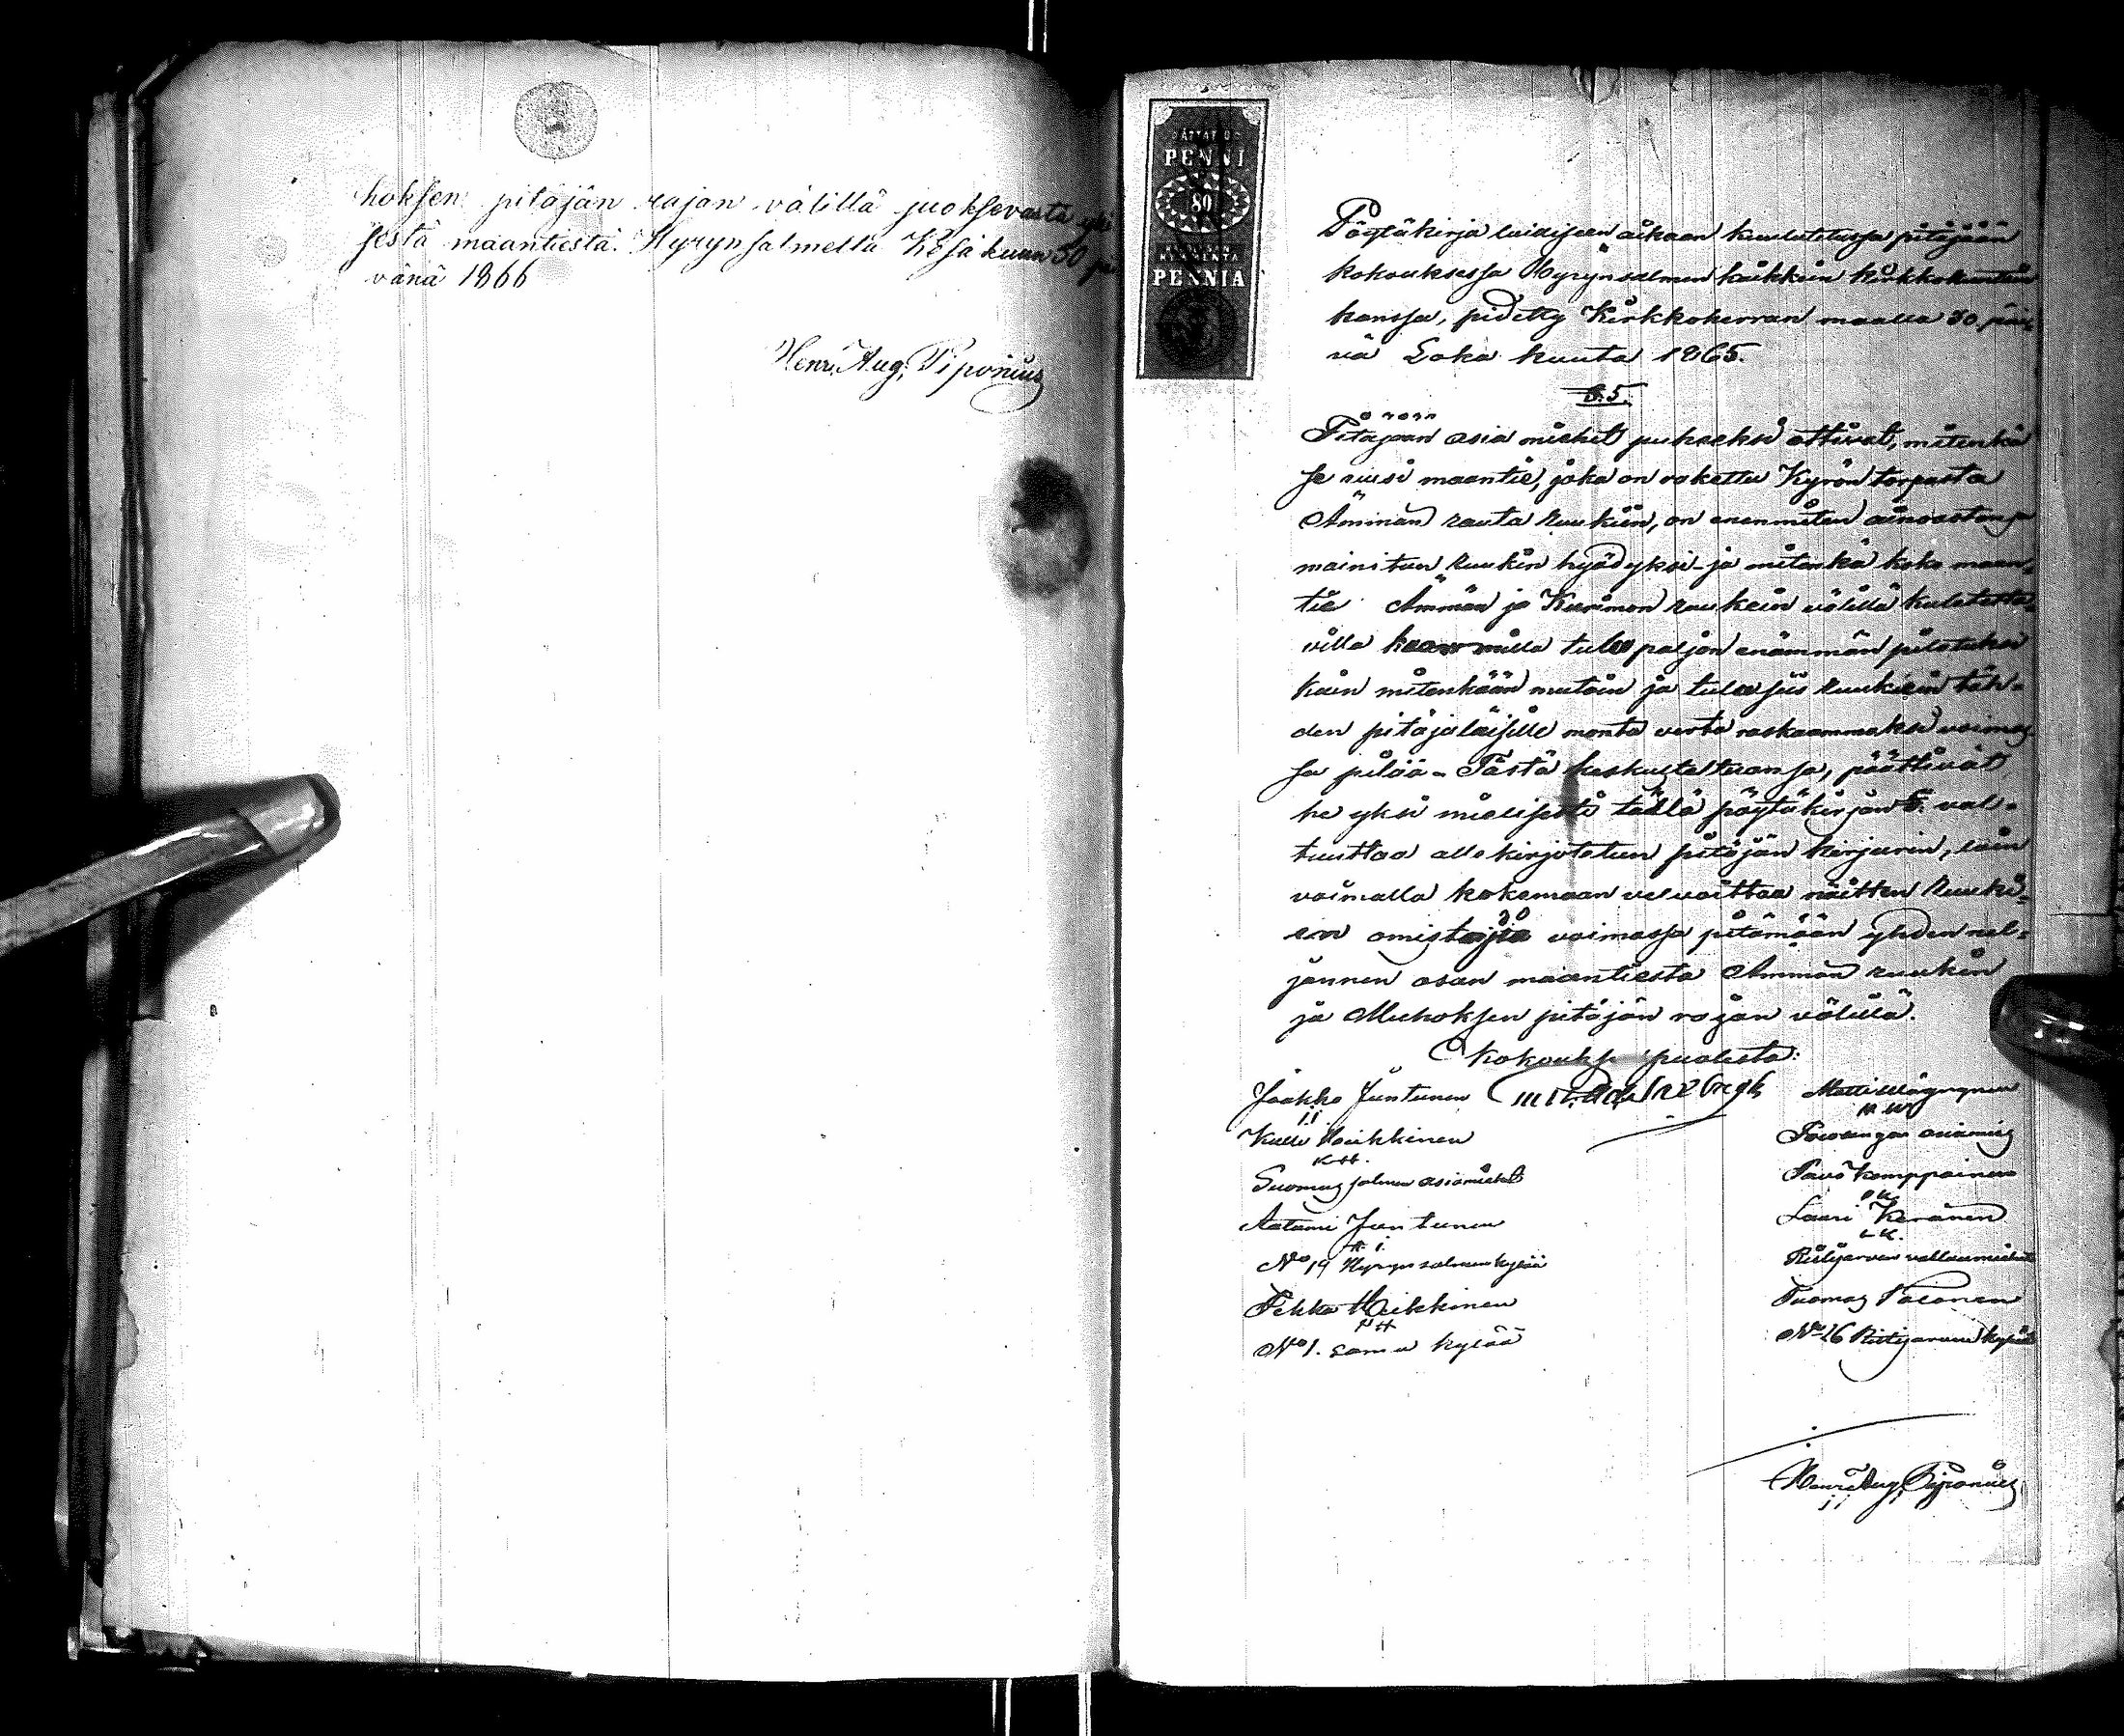 hoksen pitäjän rajan välillä juoksevasta yh
sestä maantiestä. Hyrynsalmella Kesäkuun 30 päi
vänä 1866
Henr. Aug. Piponius
PENNI
80
PENNIA
Pöytäkirja laidiseen aikaan kuulutetussa pitäjään
kokouksessa Hyrynsalmen kaikkein kirkkokuntain
kanssa, pidetty Kirkkoherran maalla 30. päi-
vä Loka kuuta 1865.
§.5.
Pitäjään asia miehet puheeksi ottivat, mitenkä
se uusi maantie, joka on rakettu Kyrön torpasta
Ämmän rauta ruukiin, on enenmiten ainoastans
mainitun ruukin hyödyksi ja mitenkä koko maan-
tie Ämmän ja Kurimon ruukein välillä kuletetta-
villa kuormilla tulee paljon enämmän pilatuksi
kuin mitenkään mutoin ja tulee siis ruukiein täh-
den pitäjäläisille monta verta raskaammaksi voimas-
sa pitää - Tästä keskusteltuansa, päättivät
he yksi mielisesti tällä pöytäkirjan §. val-
tuuttaa allekirjotetun pitäjän kirjurin, lain
voimalla kokemaan velvoittaa näitten ruuki-
en omistajia voimassa pitämään yhden nel-
jännen osan maantiestä Ämmän ruukin
ja Muhoksen pitäjän rajan välillä.
Kokouksen puolesta:
Jaakko Juntunen
J.J
Kalle Heikkinen
K H.
Suomus salmen asiamiehet
Aatami Juntunen
A. J.
No 19 Hyrynsalmen kylää
Pekka Heikkinen
P H
No 1. sama kylää
Matti Mäyrynen
M M
Puolangan asiamies
Paavo Kemppainen
P K
Lauri Keränen
L K.
Ristijärven valtuumiehet
Tuomas Tolonen
No 16 Ristijärven kylää
Henr. Aug. Piponius